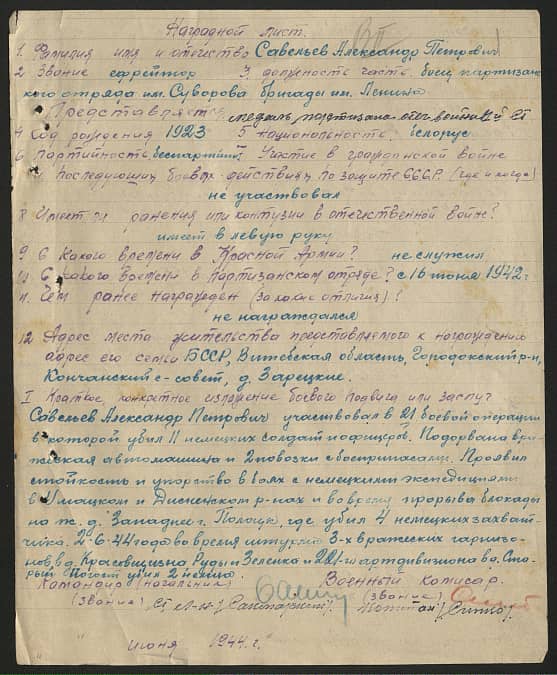 Наградной лист.
1. Фамилия имя и отчество Савельев Александр Петрович
2 Звание ефрейтор 3. должность часть боец партизан-
ского отряда им. Суворова бригады им. Ленина
Представляется медаль партизана отеч. войны II ст
4 Год рождения 1923 5 национальность белорус
6 партийность беспартийн 7. Участие в гражданской войне
и последующих боевых действиях по защите СССР (где и когда)
не участвовал
8 Имеет ли ранения или контузии в отечественной войне?
имеет в левую руку
9 С какого времени в Красной Армии? не служил
10 С какого времени в партизанском отряде? с 16 июня 1942 г
11. Чем ранее награжден (за какие отличия)?
не награждался
12 Адрес места жительства представляемого к награждению
адрес его семьи БССР, Витебская область, Городокский р-н,
Кончанский с-совет, д. Зарецкие.
I Краткое конкретное изложение боевого подвига или заслуг
Савельев Александр Петрович участвовал в 21 боевой операции
в которой убил 11 немецких солдат и офицеров. Подорвана вра-
жеская автомашина и 2 повозки с боеприпасами. Проявил
стойкость и упорство в боях с немецкими экспедициями
в Ушацком и Дисненском р-нах и во время прорыва блокады
на ж. д. Западнее г. Полоцк, где убил 4 немецких захват-
чика. 2-6-44 года во время штурма 3-х вражеских гарнизо-
нов, в д. Красовщизна Руды и Зеленка и 221-го артдивизиона в д. Ста-
рый Погост убил 2 немца.
Командир (начальник) Военный комисар.
(Звание) Ст л-нт (звание)
июня 1944 г.